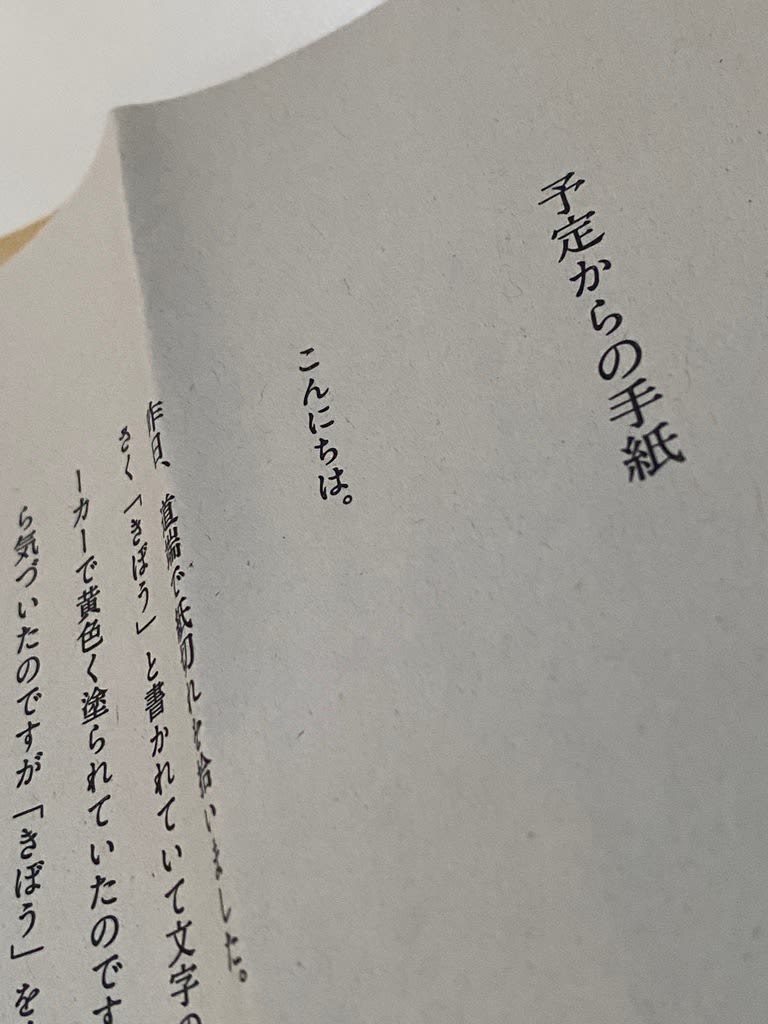 予定からの手紙
こんにちは。
昨日、道端で紙切れを拾いました。
さく「きぼう」と書かれていて文字の
ーカーで黄色く塗られていたのです
ら気づいたのですが「きぼう」を